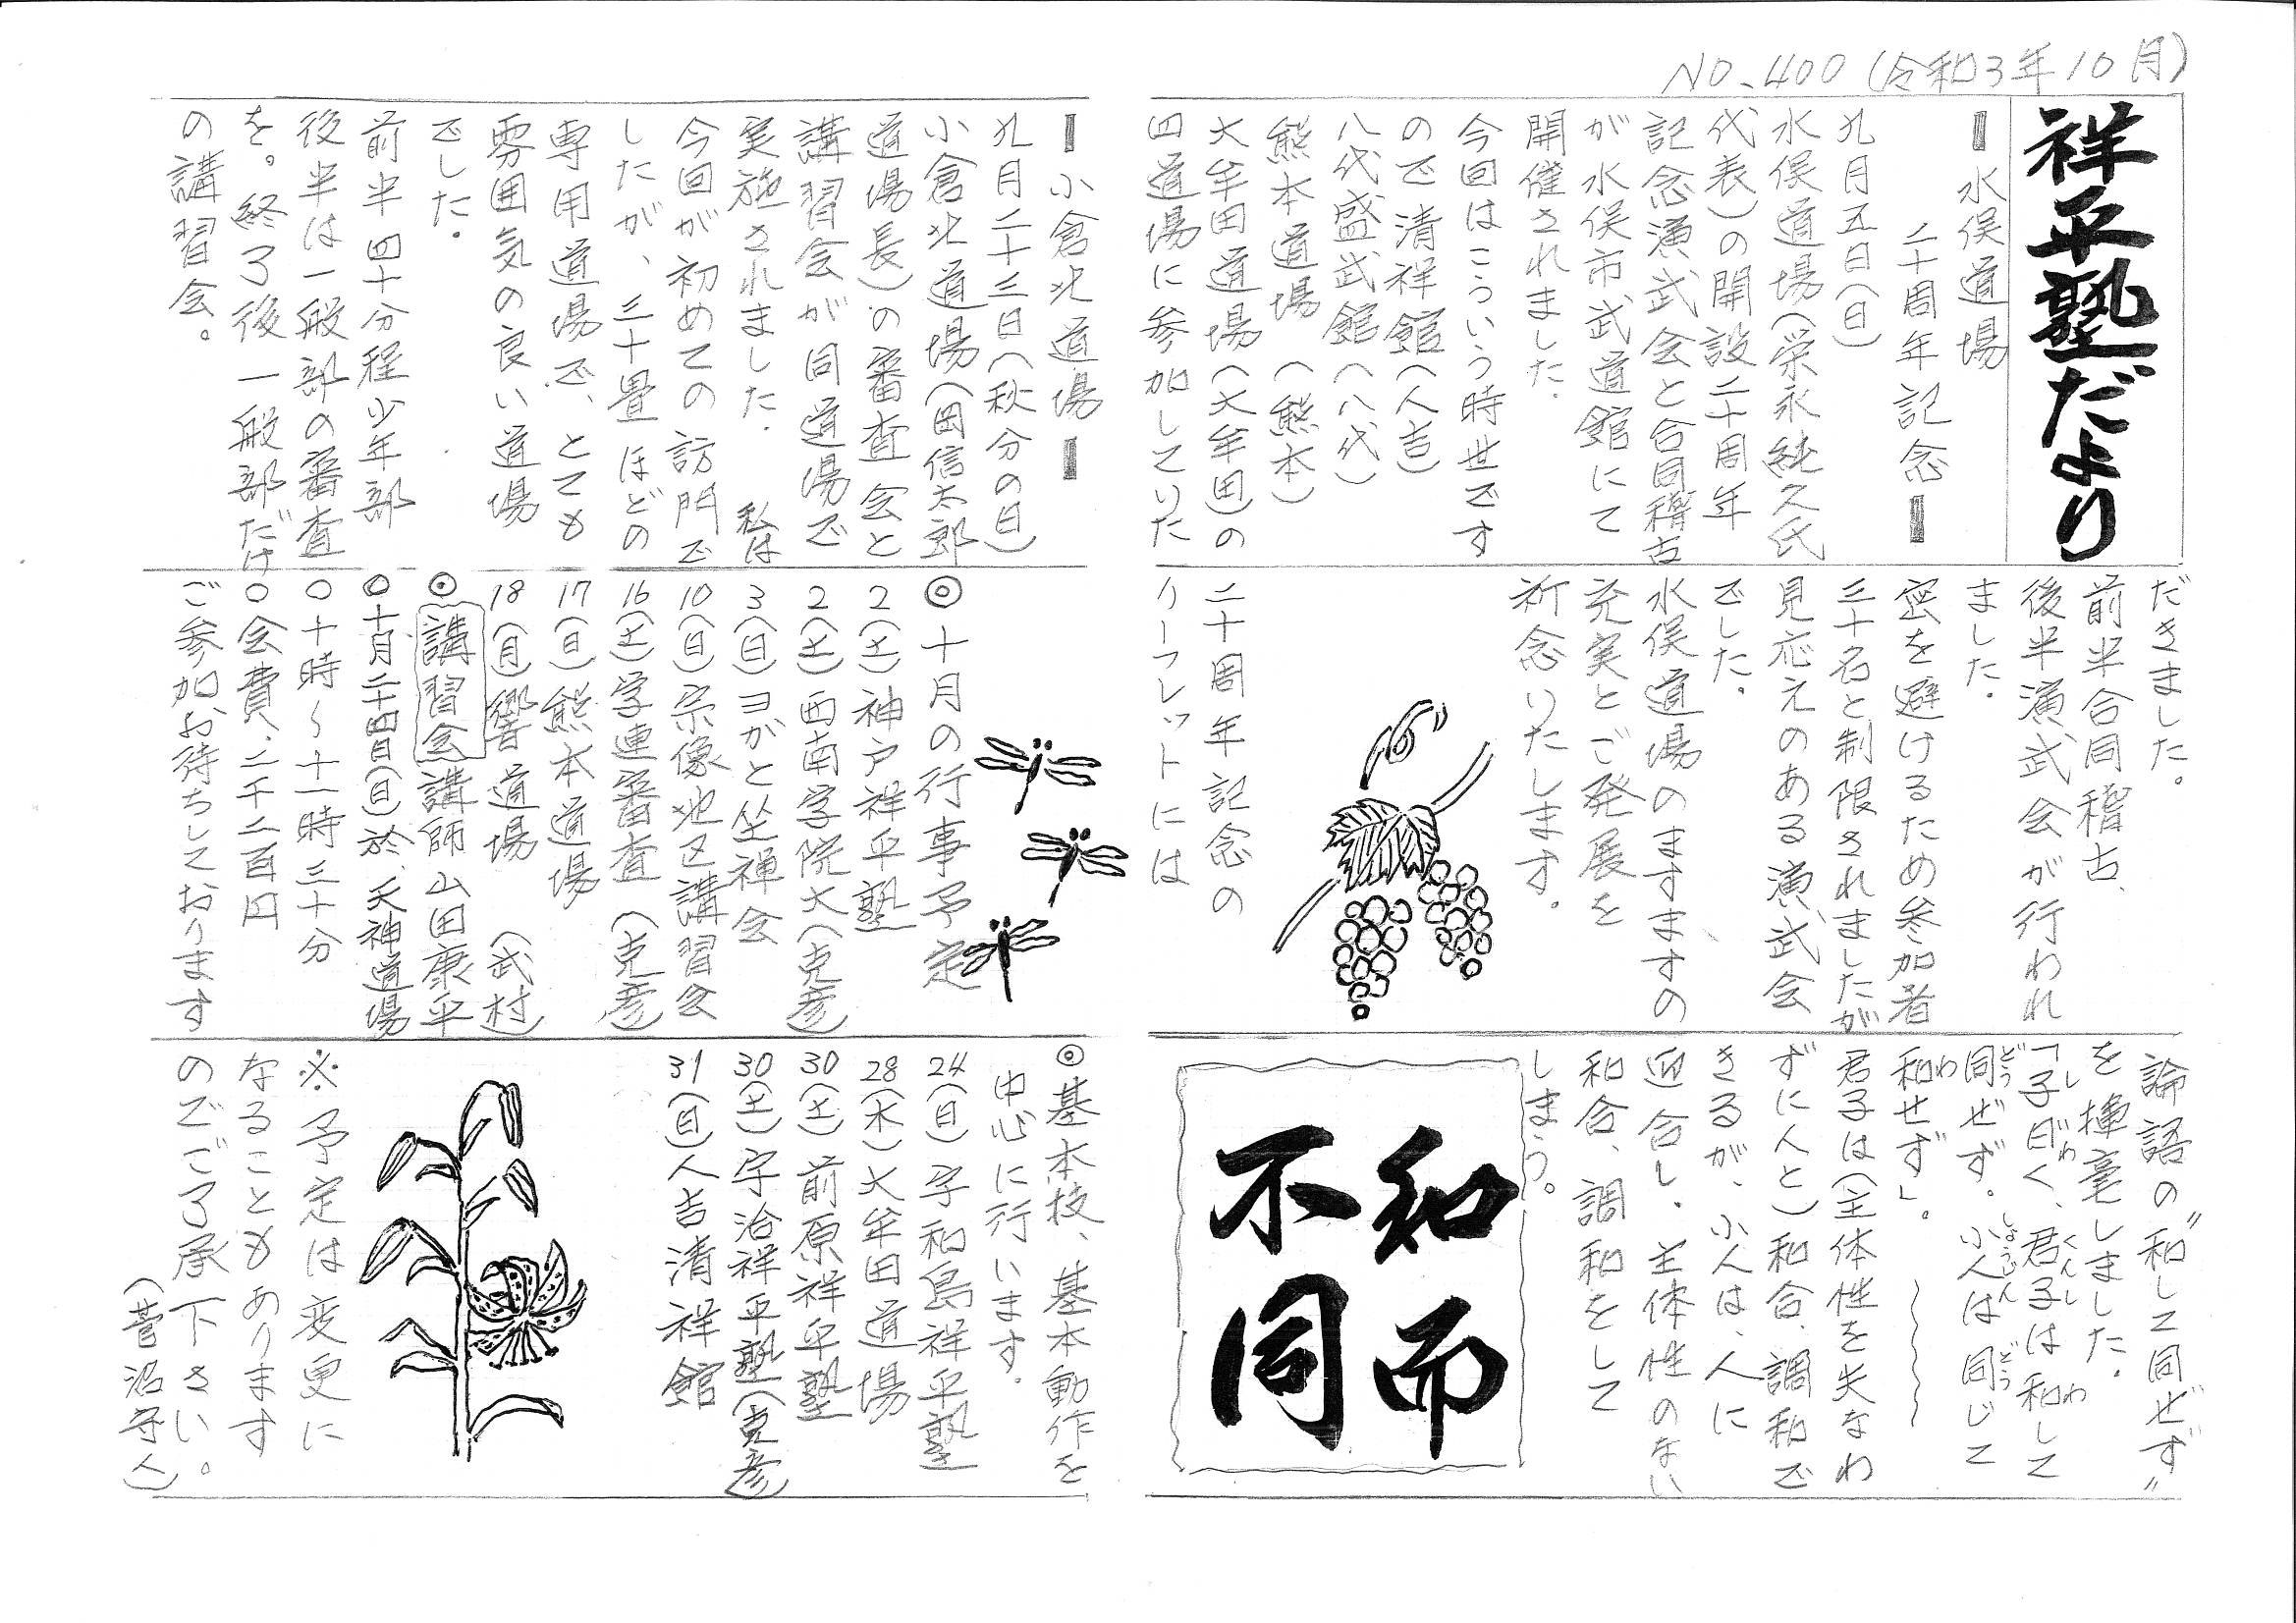 NO.400(令和3年10月)
祥平塾だより
水俣道場
二十周年記念
九月五日(日)
水俣道場(栄永純久氏
代表)の開設二十周年
記念演武会と合同稽古
が水俣市武道館にて
開催されました.
今回はこういう時世です
ので清祥館(人吉)
八代盛武館(八代)
熊本道場(熊本)
大牟田道場(大牟田)の
四道場に参加していた
だきました。
前半合同稽古、
後半演武会が行われ
ました.
密を避けるため参加者
三十名と制限されましたが
見応えのある演武会
でした.
水俣道場のますますの
充実とご発展を
祈念いたします.
二十周年記念の
リーフレットには
論語の〝和して同ぜず〟
を揮毫しました.
「子曰く、君子は和して
同ぜず.小人は同じて
和せず」.
君子は(主体性を失なわ
ずに人と)和合、調和で
きるが、小人は、人に
迎合し.主体性のない
和合、調和をして
しまう。
和而
不同
小倉北道場
九月二十三日(秋分の日)
小倉北道場(岡信太郎
道場長)の審査会と
講習会が同道場で
実施されました.私は
今回が初めての訪問で
したが、三十畳ほどの
専用道場で、とても
雰囲気の良い道場
でした.
前半四十分程少年部
後半は一般部の審査
を。終了後一般部だけ
の講習会。
◎十月の行事予定
2(土)神戸祥平塾
2(土)西南学院大(克彦)
3(日)ヨガと坐禅会
10(日)宗像地区講習会
16(土)学連審査(克彦)
17(日)熊本道場
18(月)響道場(武村)
◎講習会 講師 山田康平
○十月二十四日(日)於、天神道場
○十時〜十一時三十分
○会費、二千二百円
ご参加お待ちしております
◎基本技、基本動作を
中心に行います.
24(日)宇和島祥平塾
28(木)大牟田道場
30(土)前原祥平塾
30(土)宇治祥平塾(克彦)
31(日)人吉清祥館
※予定は変更に
なることもあります
のでご了承下さい。
(菅沼守人)